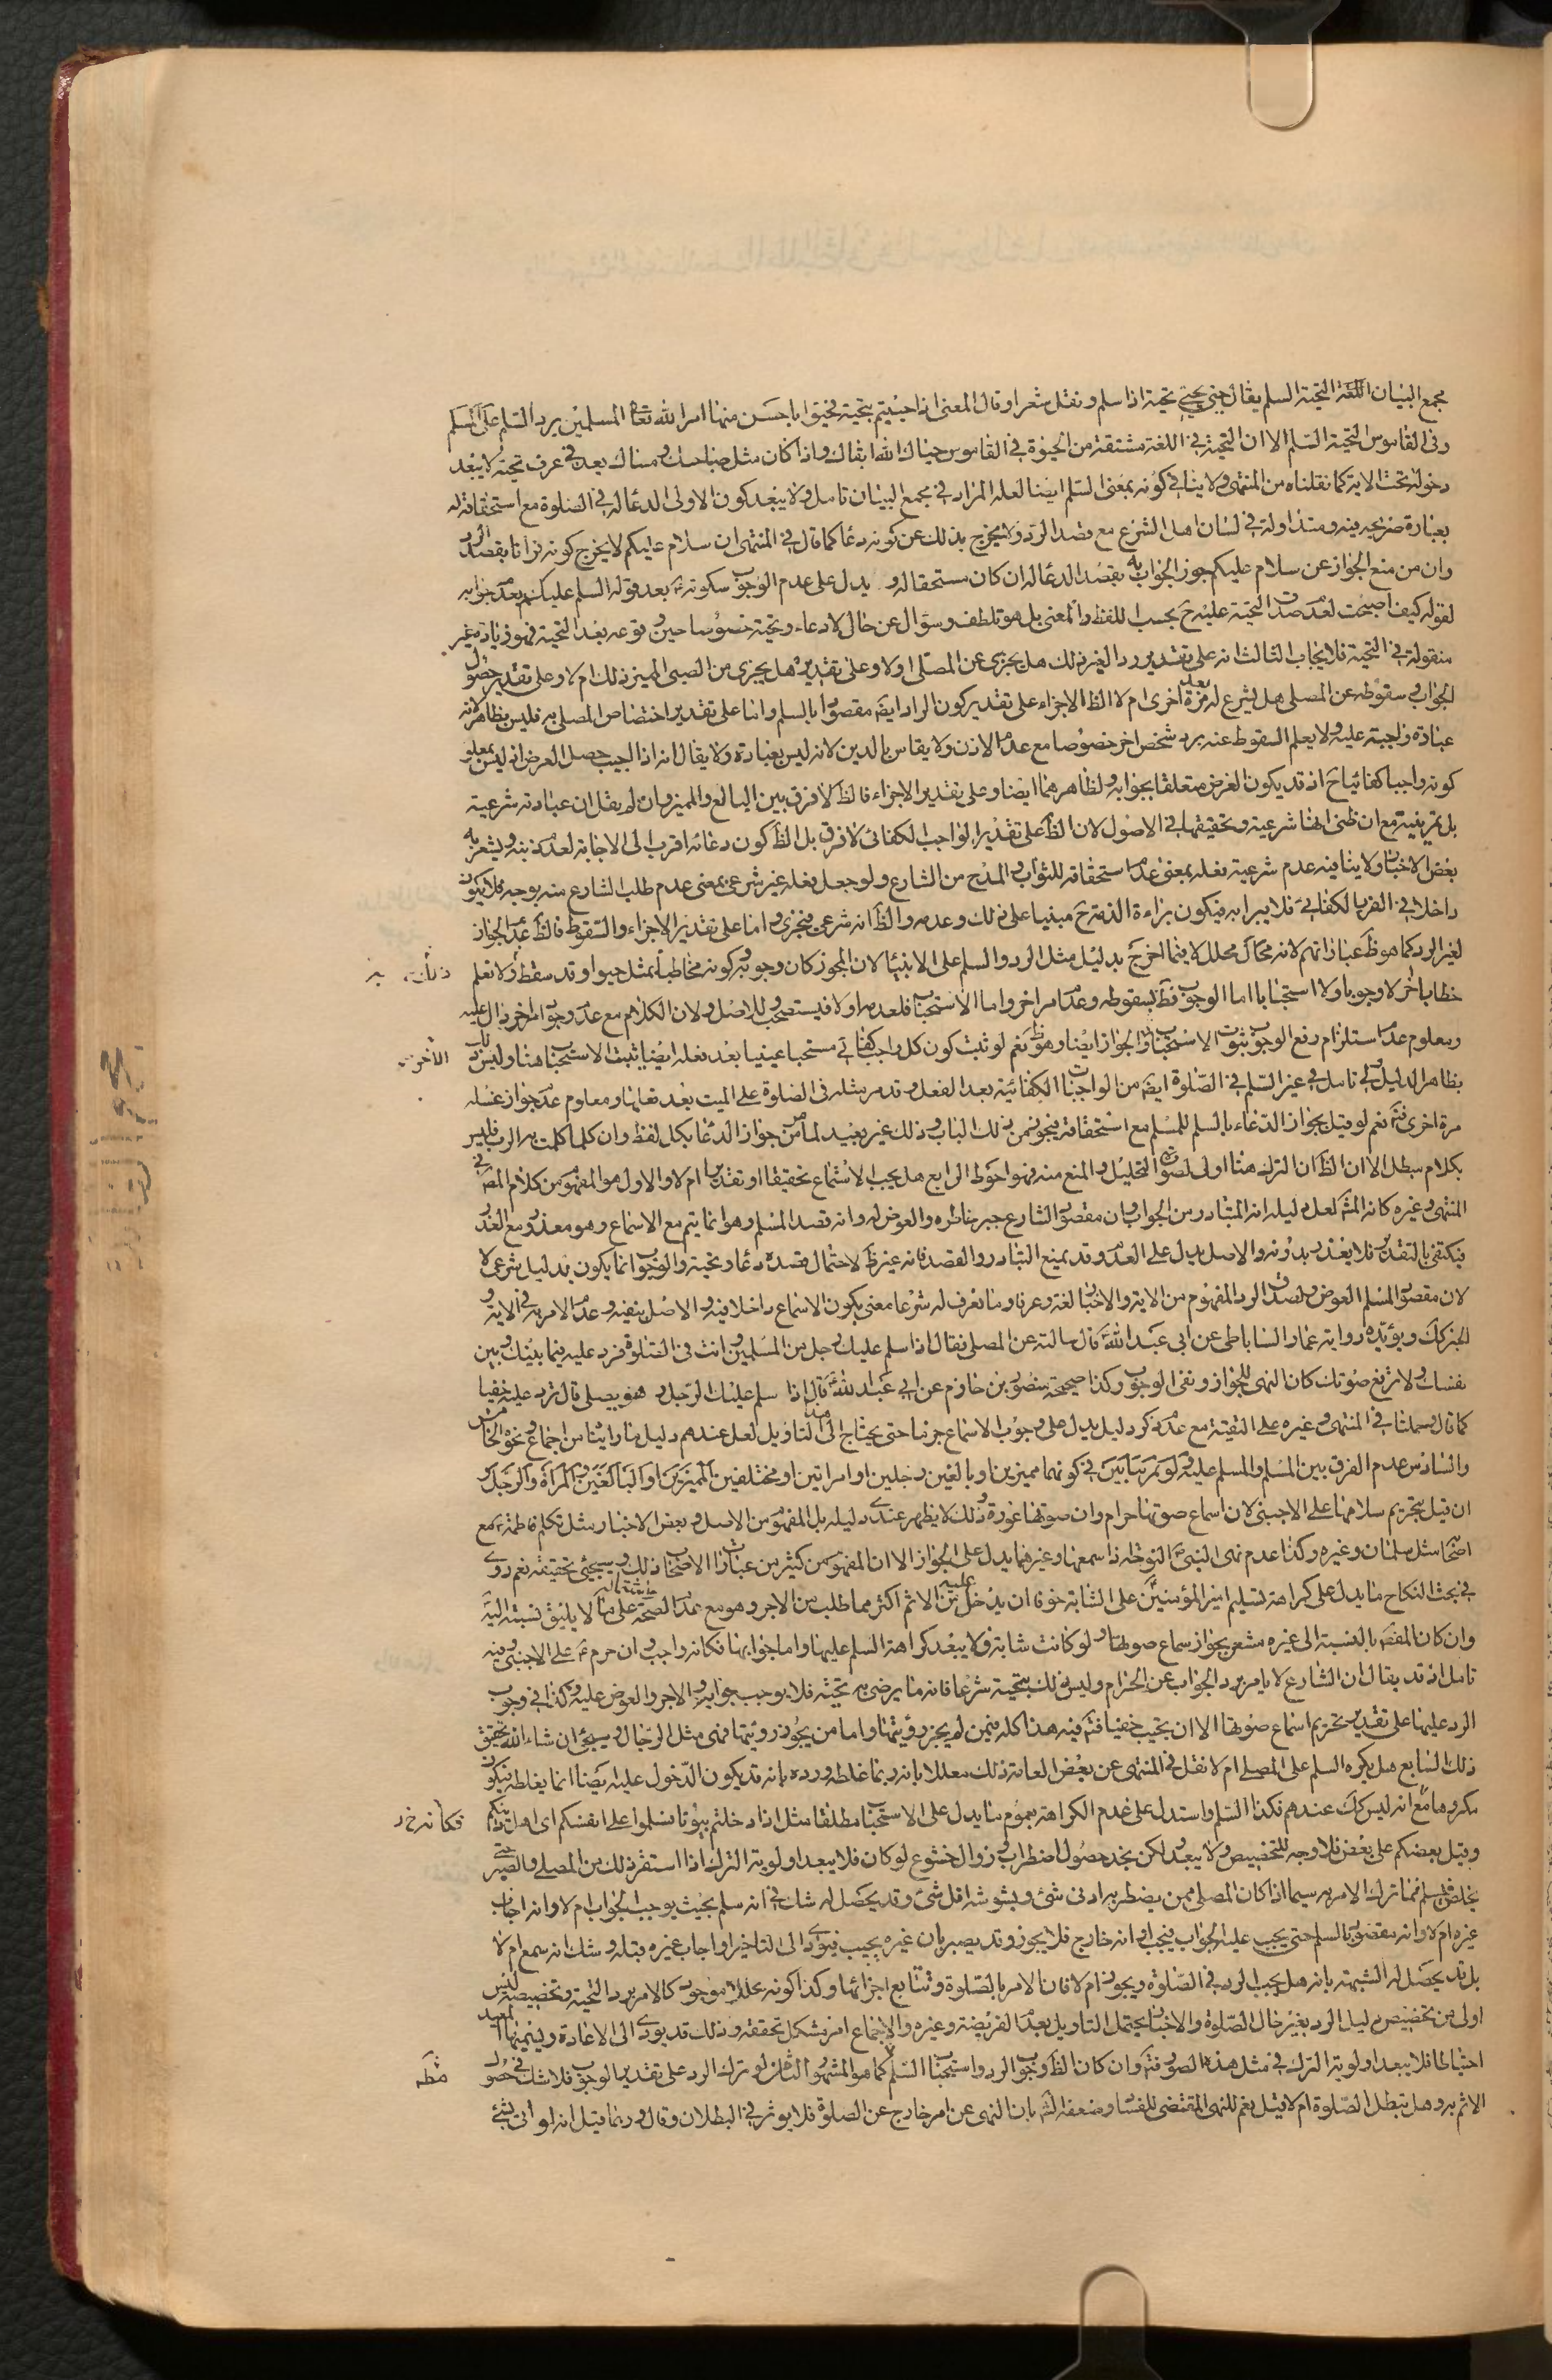 مجمع البيان اللغة التحية السلم يقال حيى يحيى تحية اذا سلم ونقل شعرا وقال المعنى اذا حييتم بتحية فحيوا باحسن منها امر الله تعا المسلمين برد السلم على المسلم
وفى القاموس التحية السلم الا ان التحية فى اللغة مشتقة من الحيوة فى القاموس حياك الله ابقاك واذا كان مثل صباحك ومساك يعد فى عرف تحية لا يبعد
دخوله تحت الاية كما نقلناه من المنتهى ولا ينافى كونه بمعنى السلم ايضا لعله المراد فى مجمع البيان تامل ولا يبعد كون الاولى الدعا له فى الصلوة مع استحقاقه له
بعبارة صريحه فيه ومتداولة فى لسان اهل الشرع مع قصد الرد ولا يخرج بذلك عن كونه دعا كما قال فى المنتهى ان سلام عليكم لا يخرج كونه قرانا بقصد الرد
وان من منع الجواز عن سلام عليكم جوز الجواب به بقصد الدعا له ان كان مستحقا له و يدل على عدم الوجوب سكوته بعد قوله السلم عليك بعد جوابه
لقوله كيف اصبحت لعدم صدق التحية عليه ح بحسب اللفظ والمعنى بل هو تلطف وسؤال عن حال لا دعاء وتحية خصوصا حين وقوعه بعد التحية فهو زيادة غير
منقولة فى التحية فلا يجاب الثالث انه على تقدير رد الغير ذلك هل يجزى عن المصلى اولا وعلى تقديره هل يجزى من الصبى المميز ذلك ام لا وعلى تقدير حصول
الجواب وسقوطه عن المصلى هل يشرع له فعله مرة اخرى ام لا الظ الاجزاء على تقدير كون الراد ايضه مقصودا بالسلم واما على تقدير اختصاص المصلى به فليس بظاهر لانه
عبادة واجبة عليه ولا يعلم السقوط عنه برد شخص اخر خصوصا مع عدم الاذن ولا يقاس بالدين لانه ليس بعبادة ولا يقال انه اذا اجيب حصل الغرض اذ ليس بمعلوم
كونه واجبا كفائيا ح اذ قد يكون الغرض متعلقا بجوابه والظاهر هنا ايضا وعلى تقدير الاجزاء فالظ لا فرق بين البالغ والمميز وان لم يقل ان عبادته شرعية
بل تمرينية مع ان ظنى انها شرعية وتحقيقها فى الاصول لان الظ على تقدير الواجب الكفائى لا فرق بل الظ كون دعائه اقرب الى الاجابة لعدم ذنبه ويشعر به
بعض الاخبار ولا ينافيه عدم شرعية فعله بمعنى عدم استحقاقه للثواب والمدح من الشارع ولو جعل فعله غير شرعى بمعنى عدم طلب الشارع منه بوجه فلا يكون
داخلا فى الفرض الكفائى فلا يبرا به فيكون براءة الذمة ح مبنيا على ذلك وعدمه والظ انه شرعى فيجزى واما على تقدير الاجزاء والسقوط فالظ عدم الجواز
لغير الرد كما هو ظ عباراتهم لانه محال محلل الا فيما اخرج بدليل مثل الرد والسلم على الانبيا لان المجوز كان وجوبه وكونه مخاطبا بمثل حيوا وقد سقط ولا نعلم
خطابا اخر لا وجوبا ولا استحبابا اما الوجوب فظ لسقوطه وعدم امر اخر واما الاستحباب فلعدمه اولا فيستصحب وللاصل ولان الكلام مع عدم وجود امر اخر دال عليه
ومعلوم عدم استلزام رفع الوجوب ثبوت الاستحباب والجواز ايضا وهو ظ نعم لو ثبت كون كل واجب كفائى مستحبا عينيا بعد فعله ايضا ثبت الاستحباب هنا وليس ذلك
بظاهر الدليل بلى تامل فى غير السلم فى الصلوة ايضه من الواجبات الكفائية بعد الفعل وقد مر مثله فى الصلوة على الميت بعد فعلها ومعلوم عدم جواز غسله
مرة اخرى فتم نعم لو قيل بجواز الدعاء بالسلم للمسلم مع استحقاقه فيجوز من ذلك الباب وذلك غير بعيد لما مر من جواز الدعا بكل لفظ وان كلما كلمت به الرب فليس
بكلام مبطل الا ان الظ ان الترك هنا اولى لصدق التحليل والمنع منه فهو احوط الرابع هل يجب الاستماع تحقيقا او تقديرا ام لا والاول هو المفهوم من كلام المص فى
المنتهى وغيره كانه المشه لعل دليله انه المتبادر من الجواب وان مقصود الشارع جبر خاطره والعوض له وانه قصد المسلم وهو انما يتم مع الاسماع وهو معذور مع العذر
فيكتفى بالتقدير فلا يعذر بدونه والاصل يدل على العدم وقد يمنع التبادر والقصد فانه غير ظ لاحتمال قصده دعا وتحية والوجوب انما يكون بدليل شرعى لا
لان مقصود المسلم العوض ولصدق الرد المفهوم من الاية والاخبار لغة وعرفا وما نعرف له شرعا معنى يكون الاسماع داخلا فيه والاصل ينفيه وعدم الامر به فى الاية و
الخبر كك ويؤيده رواية عمار الساباطى عن ابى عبد الله قال سالته عن المصلى فقال اذا سلم عليك رجل من المسلمين وانت فى الصلوة فرد عليه فيما بينك وبين
نفسك ولا ترفع صوتك كان النهى للجواز ونفى الوجوب وكذا صحيحة منصور بن حازم عن ابى عبد الله قال اذا سلم عليك الرجل وهو يصلى قال ترد عليه خفيا
كما قال وحملنا فى المنتهى وغيره على التقية مع عدم ذكر دليل يدل على وجوب الاسماع جزما حتى يحتاج الى هذا التاويل لعل عندهم دليل ما راينا من اجماع ونحوه الخامس
والسادس عدم الفرق بين المسلم والمسلم عليه ولو تم تباين فى كونهما مميزين او بالغين رجلين او امراتين او مختلفين المميزين او البالغين والمراة والرجل و
ان قيل بتحريم سلامها على الاجنبى لان اسماع صوتها حرام وان صوتها عورة وذلك لا يظهر عندى دليله بل المفهوم من الاصل وبعض الاخبار مثل تكلم فاطمة مع
اصحاب مثل سلمان وغيره وكذا عدم نهى النبى النوحة اذا سمعها وغيرهما يدل على الجواز الا ان المفهوم من كثير من عبارات الاصحاب ذلك وسيجئ تحقيقه نعم روى
فى بحث النكاح ما يدل على كراهة تسليم امير المؤمنين على الشابة خوفا ان يدخل عليه من الاثم اكثر مما طلب من الاجر وهو مع عدم الصحة مشتمل على ما لا يليق نسبته اليه
وان كان المقصه بالنسبة الى غيره مشعر بجواز سماع صوتها ولو كانت شابة ولا يبعد كراهة السلم عليها واما جوابها فكانه واجب وان حرم على الاجنبى فيه
تامل اذ قد يقال ان الشارع لا يامر برد الجواب عن الحرام وليس ذلك بتحية شرعا فانه ما يرضى به تحيته فلا يوجب جوابه والاجر والعوض عليه وكذا فى وجوب
الرد عليها على تقدير تحريم اسماع صوتها الا ان تجيب خفيا فتم فيه هذا كله فيمن لم يجز رؤيتها واما من يجوز رؤيتها فهى مثل الرجال وسيجئ ان شاء الله تحقيق
ذلك السابع هل يكره السلم على المصلى ام لا نقل فى المنتهى عن بعض العامة ذلك معللا بانه ربما غلطه ورده بانه قد يكون الدخول عليه ايضا انما يغلطه فيكون
مكروها مع انه ليس كك عندهم فكذا السلم واستدل على عدم الكراهة بعموم ما يدل على الاستحباب مطلقا مثل اذا دخلتم بيوتا فسلموا على انفسكم اى اهل دينكم
وقيل بعضكم على بعض فلا وجه للتخصيص ولا يبعد لكن بجد حصول اضطراب وزوال خشوع لو كان فلا يبعد اولوية الترك اذا استقر ذلك من المصلى والصبر حتى
يخلص ثم سلم فما ترك الامر به سيما اذا كان المصلى ممن يضطر به ادنى شئ ويشوشه اقل شئ وقد يحصل له شك فى انه سلم بحيث يوجب الجواب ام لا وانه اجاب
غيره ام لا وانه مقصود بالسلم حتى يجب عليه الجواب فيجب او انه خارج فلا يجوز وقد يصبر بان غيره يجيب فيؤدى الى التاخير او اجاب غيره قبله وشك انه سمع ام لا
بل قد يحصل له الشبهة بانه هل يجب الرد فى الصلوة ويجوز ام لا فان الامر بالصلوة وتتابع اجزائها وكذا كونه محللا موجود كالامر برد التحية وتخصيصه ليس
اولى من تخصيص دليل الرد بغير حال الصلوة والاخبار يحتمل التاويل بعدم الفريضة وغيره والاجماع امر مشكل تحققه وذلك قد يؤدى الى الاعادة وليتمها
احتياطا فلا يبعد اولوية الترك فى مثل هذه الصور فتم وان كان الظ وجوب الرد واستحباب السلم كما هو المشهور الثامن لو ترك الرد على تقدير الوجوب فلا شك فى حصول
الاثم به وهل تبطل الصلوة ام لا قيل نعم للنهى المقتضى للفساد وضعفه الشه بان النهى عن امر خارج عن الصلوة فلا يوثر فى البطلان وقال وربما قيل انه لو اتى بشئ